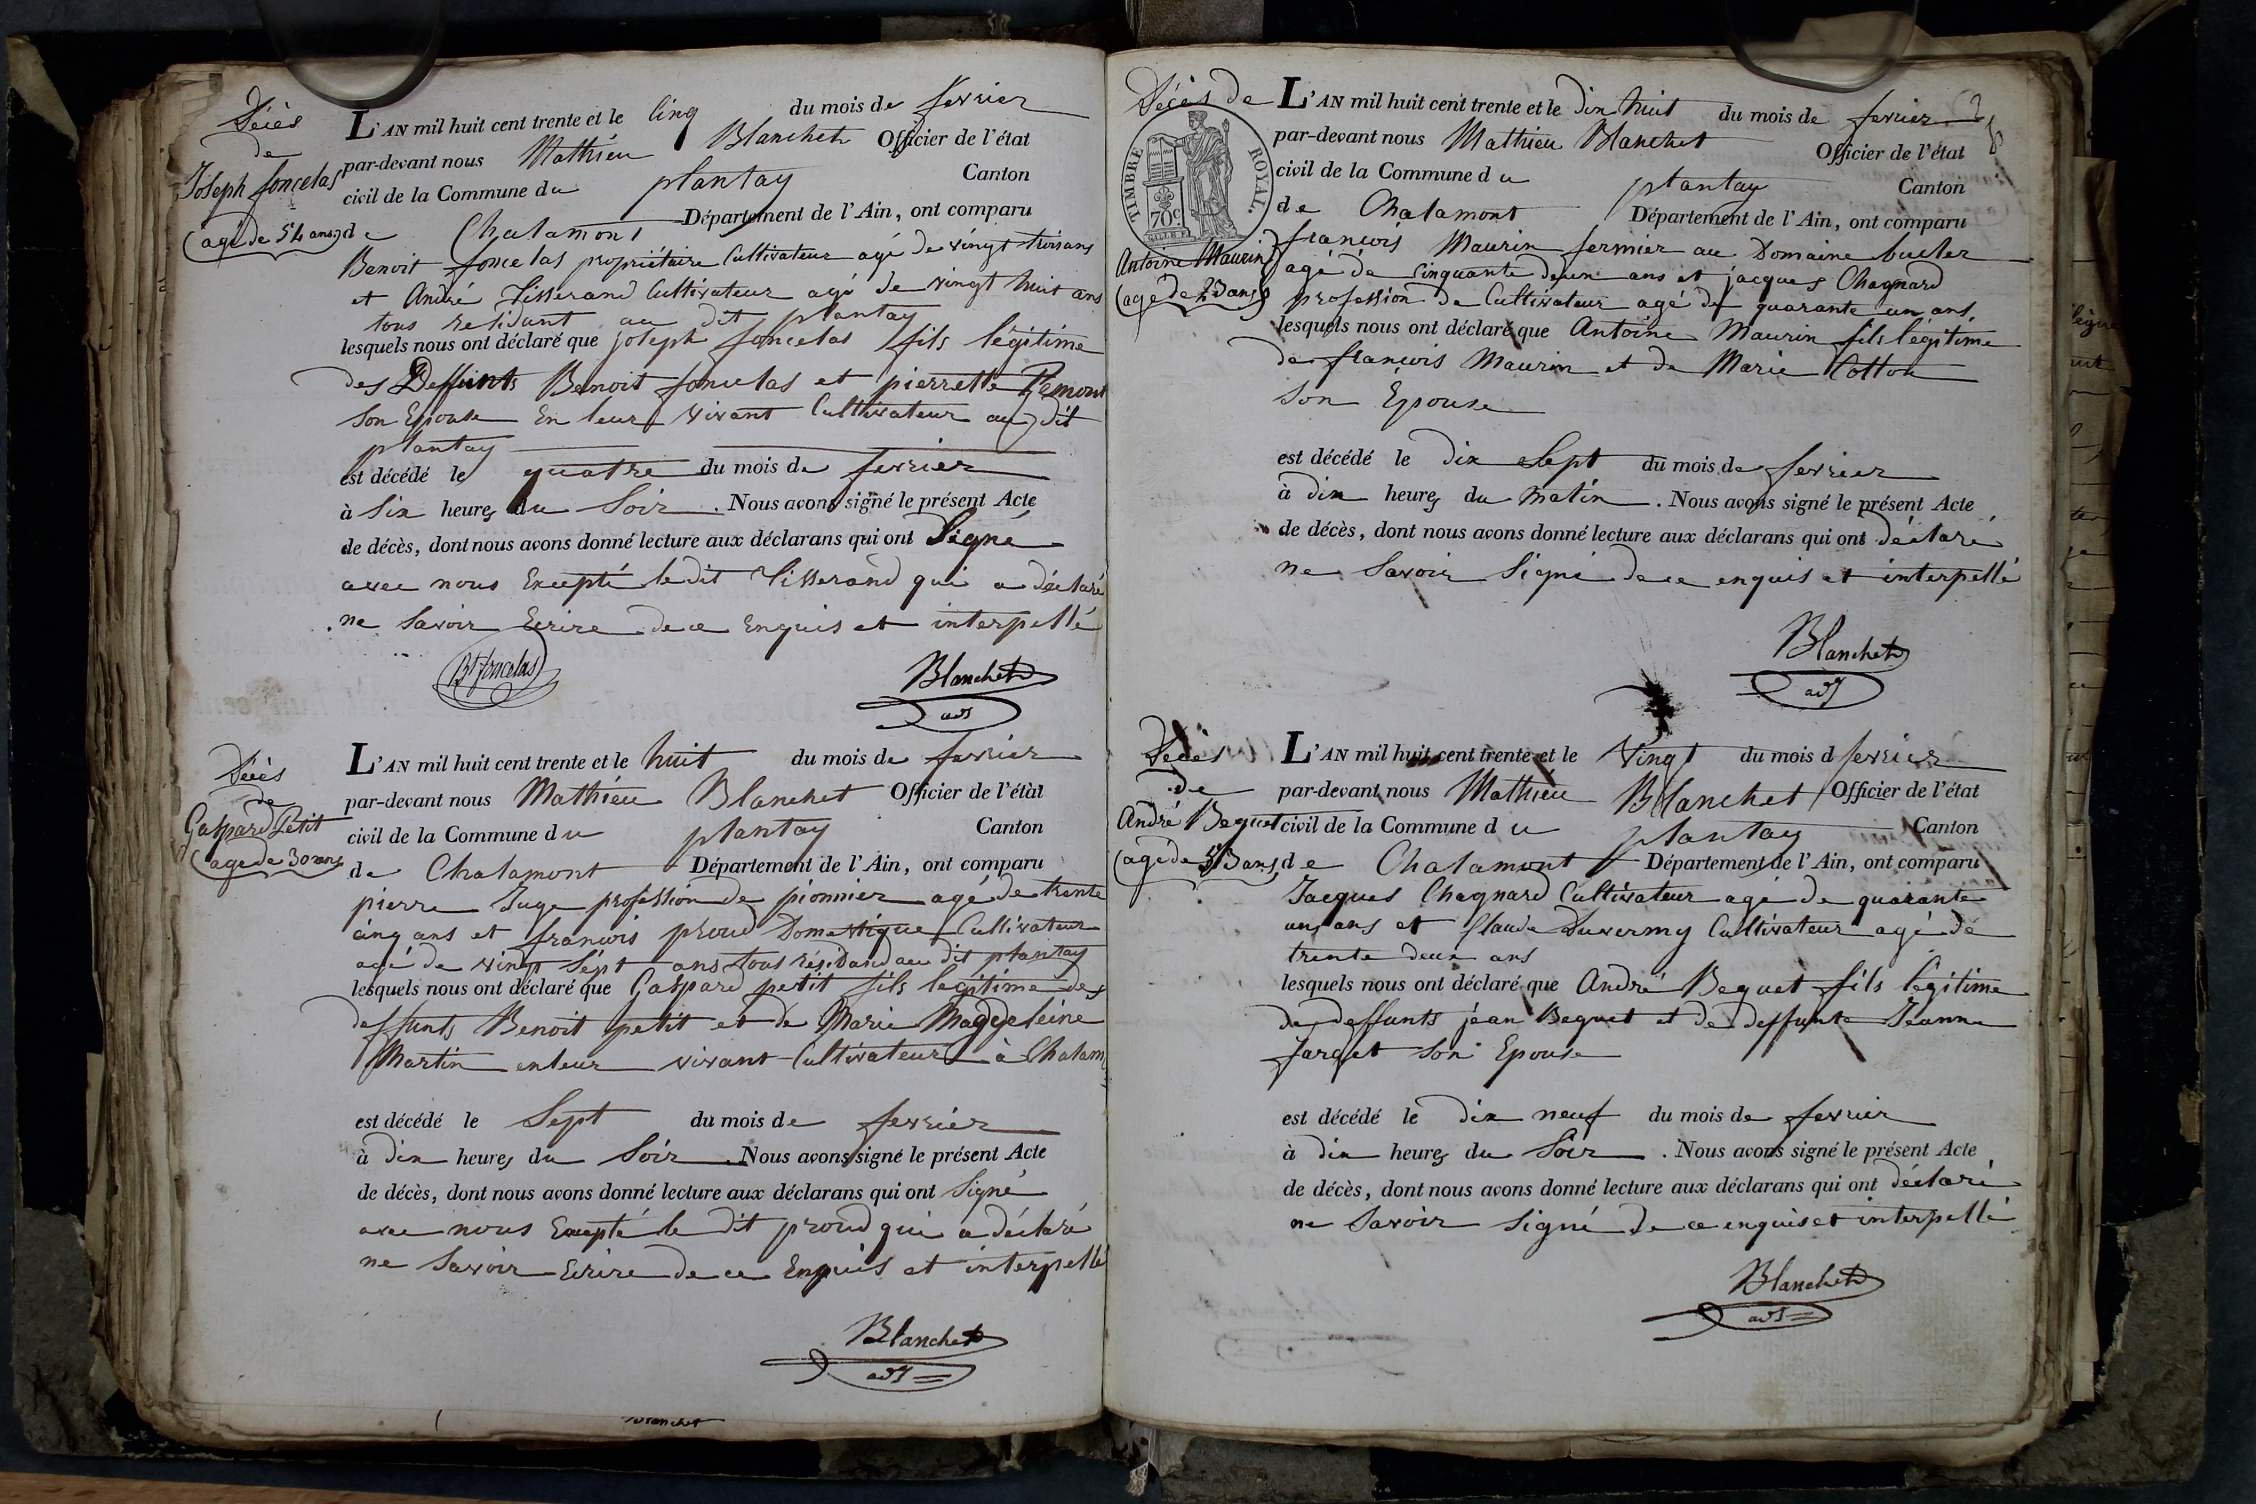 Décès
de
Joseph foncelas
(agé de 54 ans)
L'AN mil huit cent trente et le Cinq du mois de fevrier
par-devant nous Mathieu Blanchet Officier de l'état
civil de la Commune du plantay Canton
de Chalamont Département de l'Ain, ont comparu
Benoit foncelas propriétaire Cultivateur agé de vingt trois ans
et André Tisserand Cultivateur agé de vingt huit ans
tous residant au dit plantay
lesquels nous ont déclaré que joseph foncelas fils légitime
des Deffunts Benoit foncelas et pierrette
son Epouse En leur vivant Cultivateur au dit
plantay
est décédé le quatre du mois de fevrier
à Six heures du Soir. Nous avons signé le présent Acte
de décès, dont nous avons donné lecture aux déclarans qui ont Signé
avec nous Excepté le dit Tisserand qui a déclaré
ne Savoir Ecrire de ce Enquis et interpellé
Bt foncelas
Blanchet
adt
Décès
de
Gaspard Petit
(agé de 30 ans
L'AN mil huit cent trente et le huit du mois de fevrier
par-devant nous Mathieu Blanchet Officier de l'état
civil de la Commune du plantay Canton
de Chalamont Département de l'Ain, ont comparu
pierre Juge profession de pionnier agé de trente
cinq ans et francois proud Domestique Cultivateur
agé de vingt Sept ans tous résidand au dit plantay
lesquels nous ont déclaré que Gaspard petit fils legitime des
deffunts Benoit petit et de Marie Magdeleine
Martin enleur vivant Cultivateur à Chalam
est décédé le Sept du mois de fevrier
à dix heures du Soir. Nous avons signé le présent Acte
de décès, dont nous avons donné lecture aux déclarans qui ont Signé
avec nous Excepté le dit proud qui a déclaré
ne Savoir Ecrire de ce Enquis et interpellé
Blanchet
adt
Blanchet
Décès de
TIMBRE ROYAL.
70c
Antoine Maurin
(agé de 23 ans)
L'AN mil huit cent trente et le dix huit du mois de fevrier
par-devant nous Mathieu Blanchet Officier de l'état
civil de la Commune du plantay Canton
de Chalamont Département de l'Ain, ont comparu
francois Maurin fermier au Domaine
agé de Cinquante deux ans et jacques Chagnard
profession de Cultivateur agé de quarante un ans,
lesquels nous ont déclaré que Antoine Maurin fils légitime
de francois Maurin et de Marie Cotton
Son Epouse
est décédé le dix Sept du mois de fevrier
à dix heures du Matin. Nous avons signé le présent Acte
de décès, dont nous avons donné lecture aux déclarans qui ont déclaré
ne Savoir Signé de ce enquis et interpellé
Blanchet
adt
Décès
de
André Beguet
(agé de 53 ans)
L'AN mil huit cent trente et le Vingt du mois d fevrier
par-devant nous Mathieu Blanchet Officier de l'état
civil de la Commune du plantay Canton
de Chalamont Département de l'Ain, ont comparu
Jacques Chagnard Cultivateur agé de quarante
un ans et Claude Duvermy Cultivateur agé de
trente deux ans
lesquels nous ont déclaré que André Beguet fils légitime
de deffunts jean Beguet et de deffunte Jeanne
Jarget son Epouse
est décédé le dix neuf du mois de fevrier
à dix heures du Soir. Nous avons signé le présent Acte
de décès, dont nous avons donné lecture aux déclarans qui ont déclaré
ne Savoir Signé de ce enquis et interpellé
Blanchet
adt